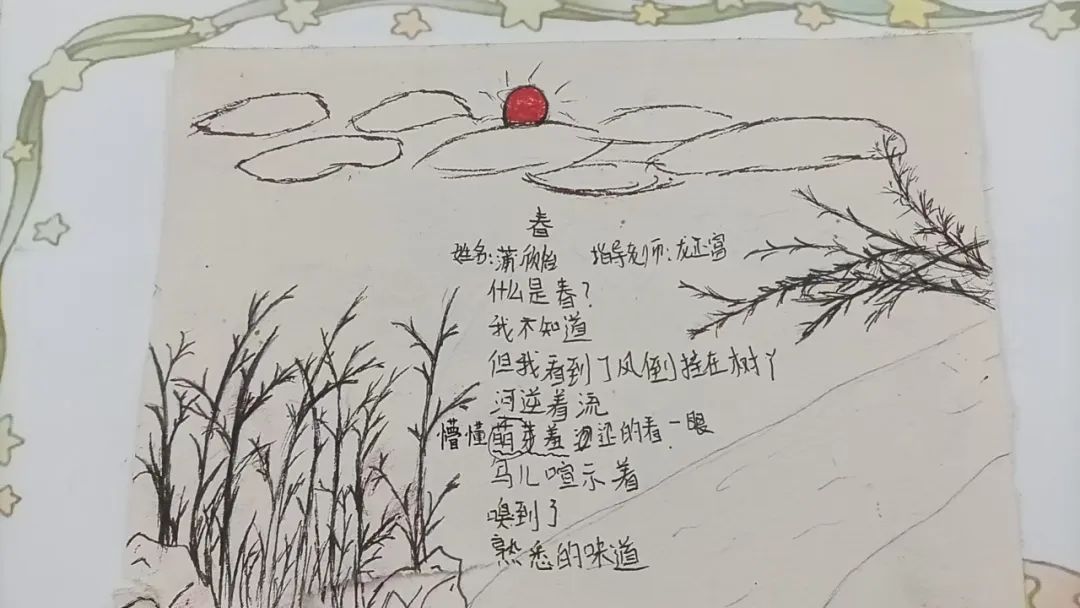 春
姓名:蒲欣怡 指导老师:龙正富
什么是春?
我不知道
但我看到了风倒挂在树丫
河逆着流
懵懂萌芽羞迟的看一眼
马儿喧示着
嗅到了
熟悉的味道